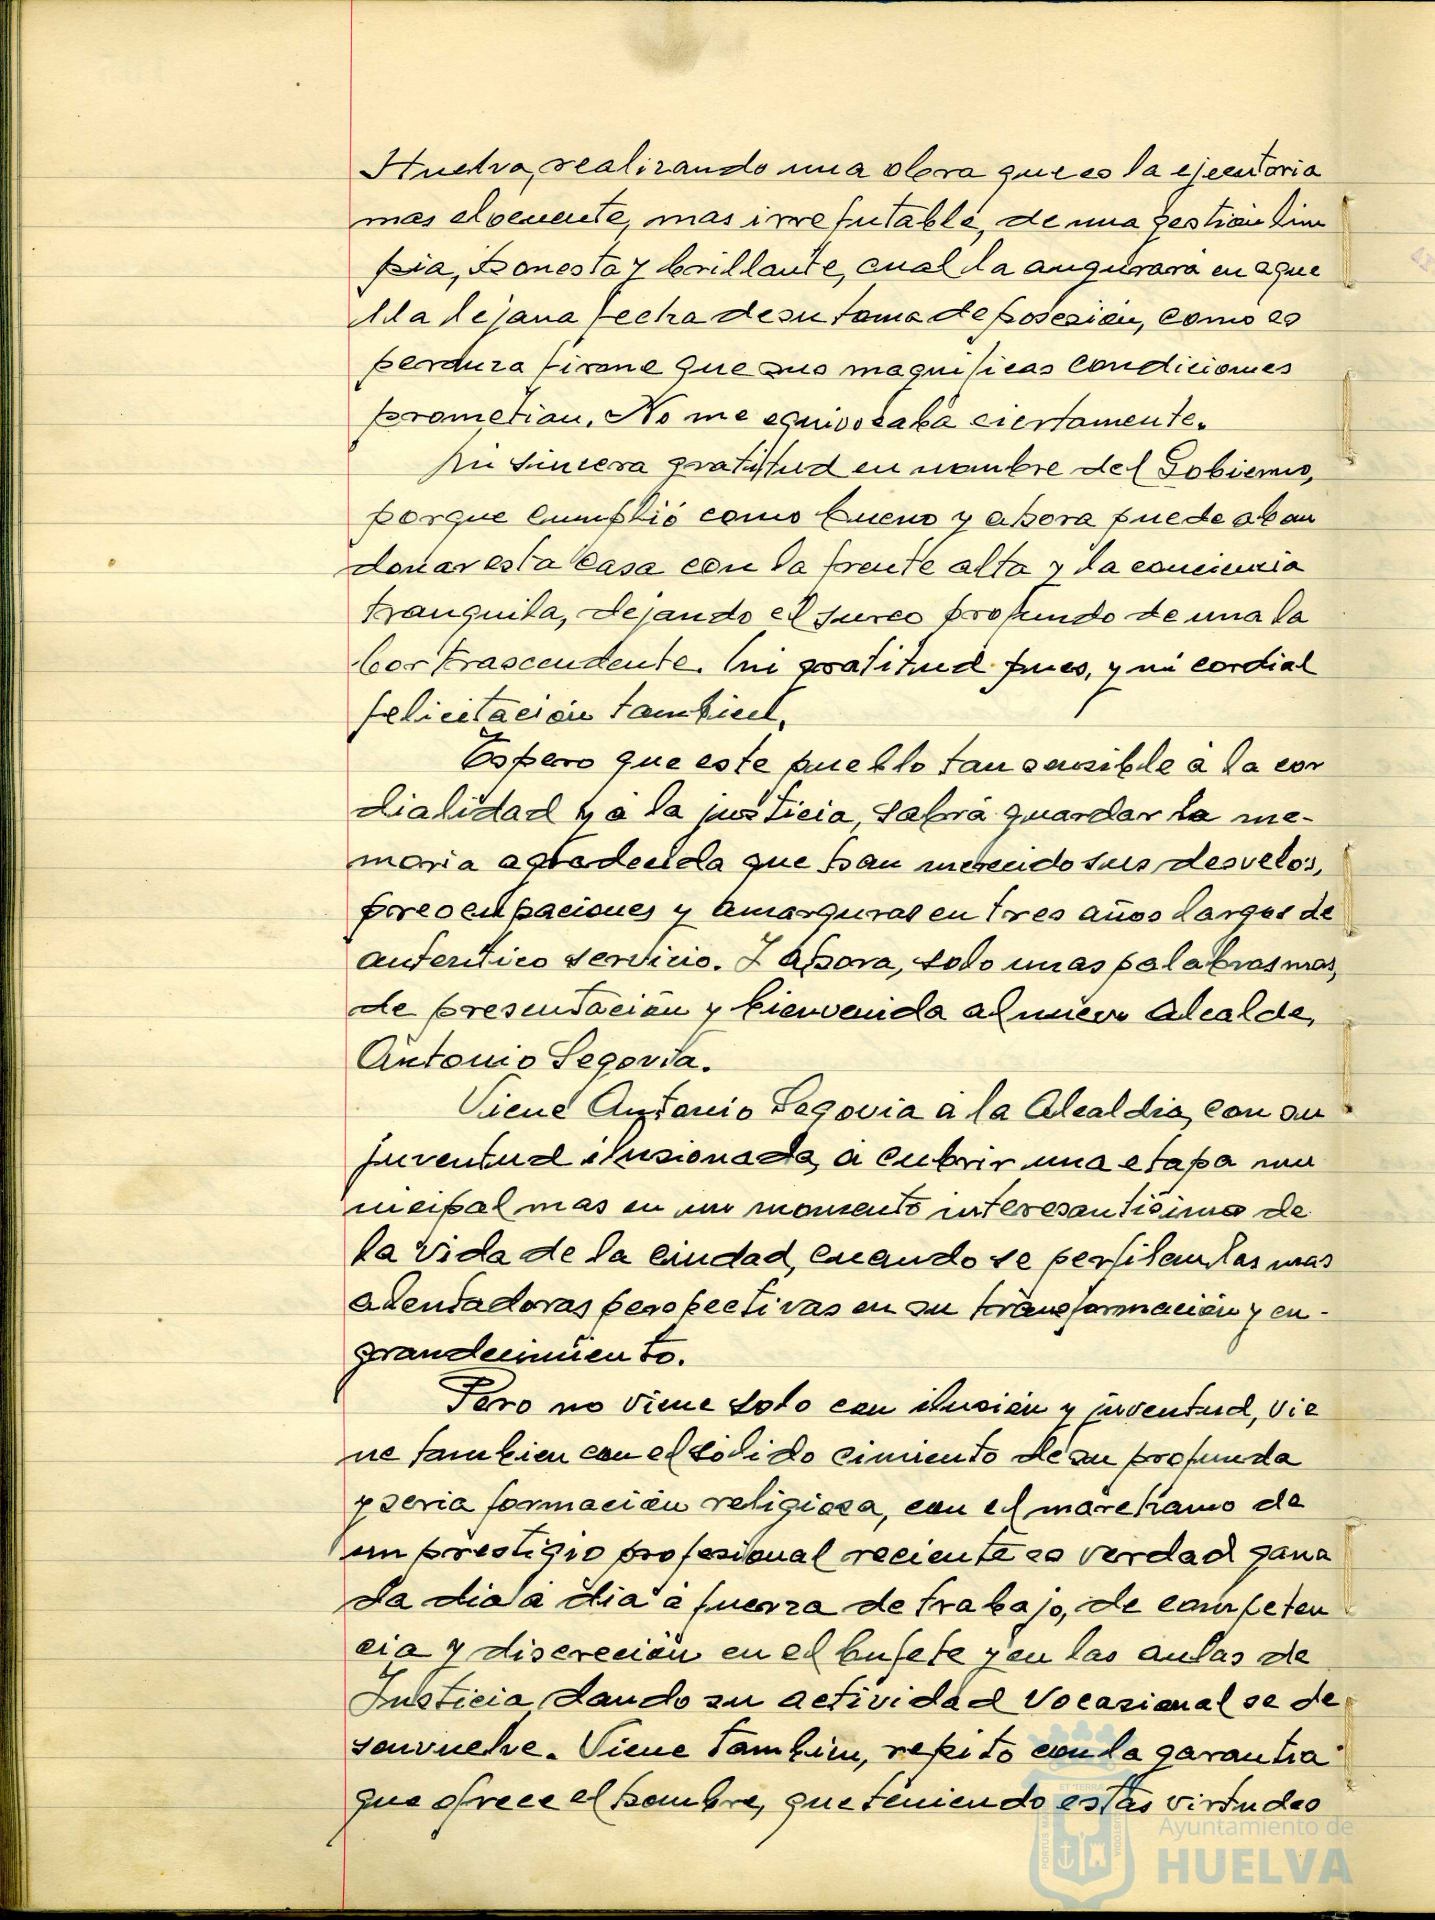 Huelva, realizando una obra que es la ejecutoria
mas elocuente, mas irrefutable, de una gestión lim
pia, honesta y brillante, cual la augurara en aque
lla lejana fecha de su toma de posesión, como es
peranza firme que sus magnificas condiciones
prometian. No me equivocaba ciertamente.
Mi sincera gratitud en nombre del Gobierno,
porque cumplió como bueno y ahora puede aban
donar esta casa con la frente alta y la conciencia
tranquila, dejando el surco profundo de una la
bor trascendente. Mi gratitud pues, y mi cordial
felicitación tambien.
Espero que este pueblo tan sensible á la cor
dialidad y á la justicia, sabrá guardar la me-
moria agradecida que han merecido sus desvelos,
preocupaciones y amarguras en tres años largos de
autentico servicio. Y ahora, solo unas palabras mas,
de presentación y bienvenida al nuevo Alcalde,
Antonio Segovia.
Viene Antonio Segovia á la Alcaldia, con su
juventud ilusionada, á cubrir una etapa mu
nicipal mas en un momento interesantisimo de
la vida de la ciudad, cuando se perfilan las mas
alentadoras perspectivas en su transformación y en-
grandecimiento.
Pero no viene solo con ilusión y juventud, vie
ne tambien con el sólido cimiento de su profunda
y seria formación religiosa, con el marchamo de
un prestigio profesional reciente es verdad gana
da dia á dia á fuerza de trabajo, de competen
cia y discreción en el bufete y en las aulas de
Justicia dando su actividad vocasional se de
senvuelve. Viene tambien, repito con la garantia
que ofrece el hombre, que teniendo estas virtudes
Ayuntamiento de
HUELVA